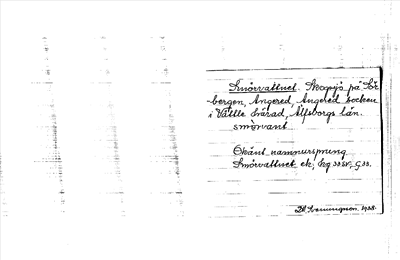 Smörvattnet. Skogsjö på Sör
bergen, Angered, Angered socken
i Vättle härad, Älfsborgs län.
smörvant
Okänt namnursprung
Smörvattnet ek,
1938.